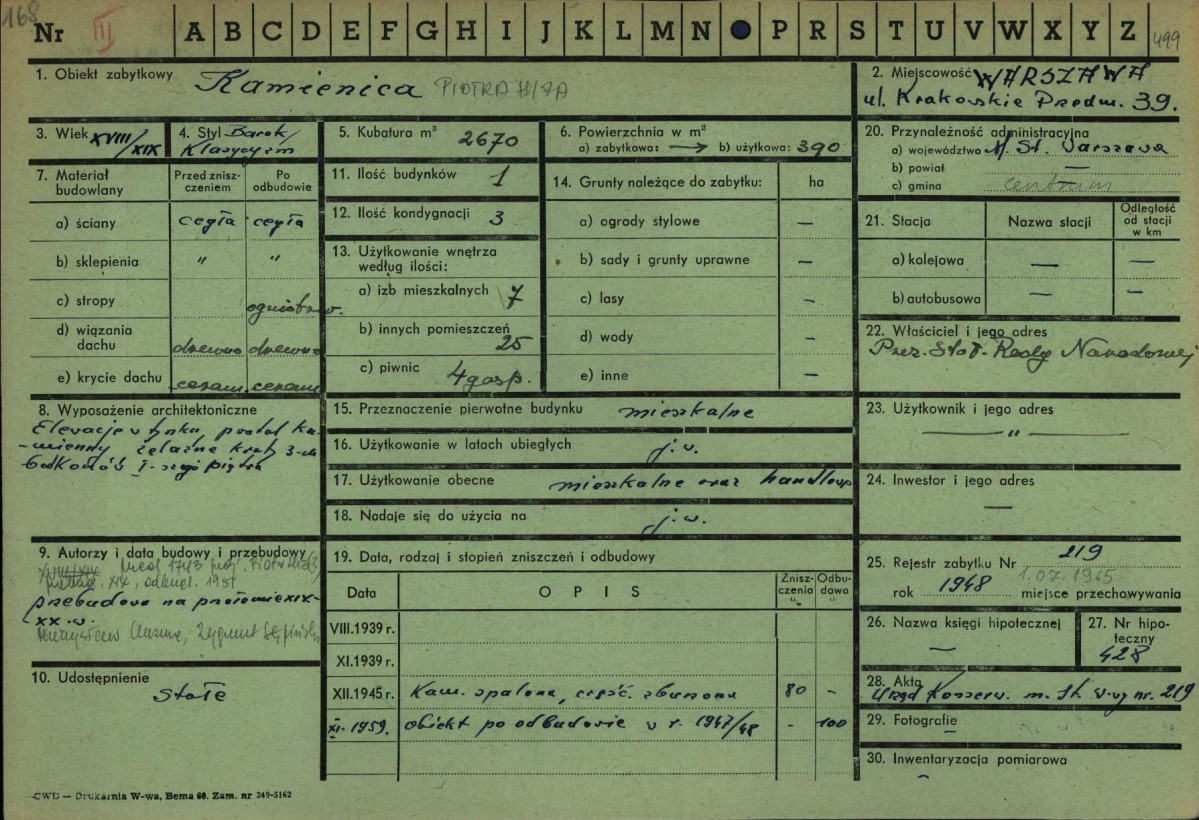 168
Nr III A B C D E F G H I J K L M N P R S T U V W X Y Z 499
1. Obiekt zabytkowy Kamienica PIOTRA HIŻA
2. Miejscowość WARSZAWA
ul. Krakowskie Przedm. 39.
3. Wiek XVIII/XIX
4. Styl Barok/
Klasycyzm
5. Kubatura m³ 2670
6. Powierzchnia w m²
a) zabytkowa: → b) użytkowa: 390
20. Przynależność administracyjna
a) województwo M. St. Warszawa
b) powiat —
c) gmina centrum
7. Materiał budowlany
Przed zniszczeniem
Po odbudowie
a) ściany cegła cegła
b) sklepienia " "
c) stropy ogniotrw.
d) wiązania dachu drewno drewno
e) krycie dachu ceram. ceram.
11. Ilość budynków 1
12. Ilość kondygnacji 3
13. Użytkowanie wnętrza
według ilości:
a) izb mieszkalnych 7
b) innych pomieszczeń 25
c) piwnic 4 gosp.
14. Grunty należące do zabytku: ha
a) ogrody stylowe —
b) sady i grunty uprawne —
c) lasy —
d) wody —
e) inne —
21. Stacja Nazwa stacji Odległość od stacji w km
a) kolejowa — —
b) autobusowa — —
22. Właściciel i jego adres
Prez. Stoł. Rady Narodowej
8. Wyposażenie architektoniczne
Elewacje w tynku portal ka-
-mienny żelazne kraty 3-ch
balkonów I-szego piętra
15. Przeznaczenie pierwotne budynku mieszkalne
16. Użytkowanie w latach ubiegłych j.w.
17. Użytkowanie obecne mieszkalne oraz handlowe
18. Nadaje się do użycia na j.w.
23. Użytkownik i jego adres
— " —
24. Inwestor i jego adres
—
9. Autorzy i data budowy i przebudowy
XVIII/XIX 1743 proj. Piotr Hiż
XIX, odbud. 1951
przebudowa na przełomie XIX-
XX w.
Zygmunt Stępiński
10. Udostępnienie
stałe
19. Data, rodzaj i stopień zniszczeń i odbudowy
Data OPIS Zniszczenia % Odbudowa %
VIII.1939 r.
XI.1939 r.
XII.1945 r. Kam. spalona, część. zburzona 80 -
XI-1959. obiekt po odbudowie w r. 1947/48 - 100
25. Rejestr zabytku Nr 219
1.07.1965
rok 1948 miejsce przechowywania
26. Nazwa księgi hipotecznej
—
27. Nr hipoteczny
428
28. Akta
Urząd Konserw. m. St. W-wy nr. 219
29. Fotografie
—
30. Inwentaryzacja pomiarowa
—
CWD — Drukarnia W-wa, Bema 60. Zam. nr 349-5162